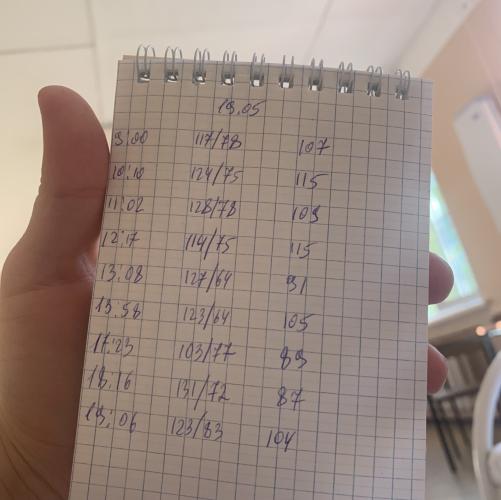 19.05
9:00 117/78 107
10:10 124/75 115
11:02 128/78 109
12:17 114/75 115
13:08 127/64 91
13:58 123/64 105
17:23 103/77 89
18:16 131/72 87
19:06 123/83 104